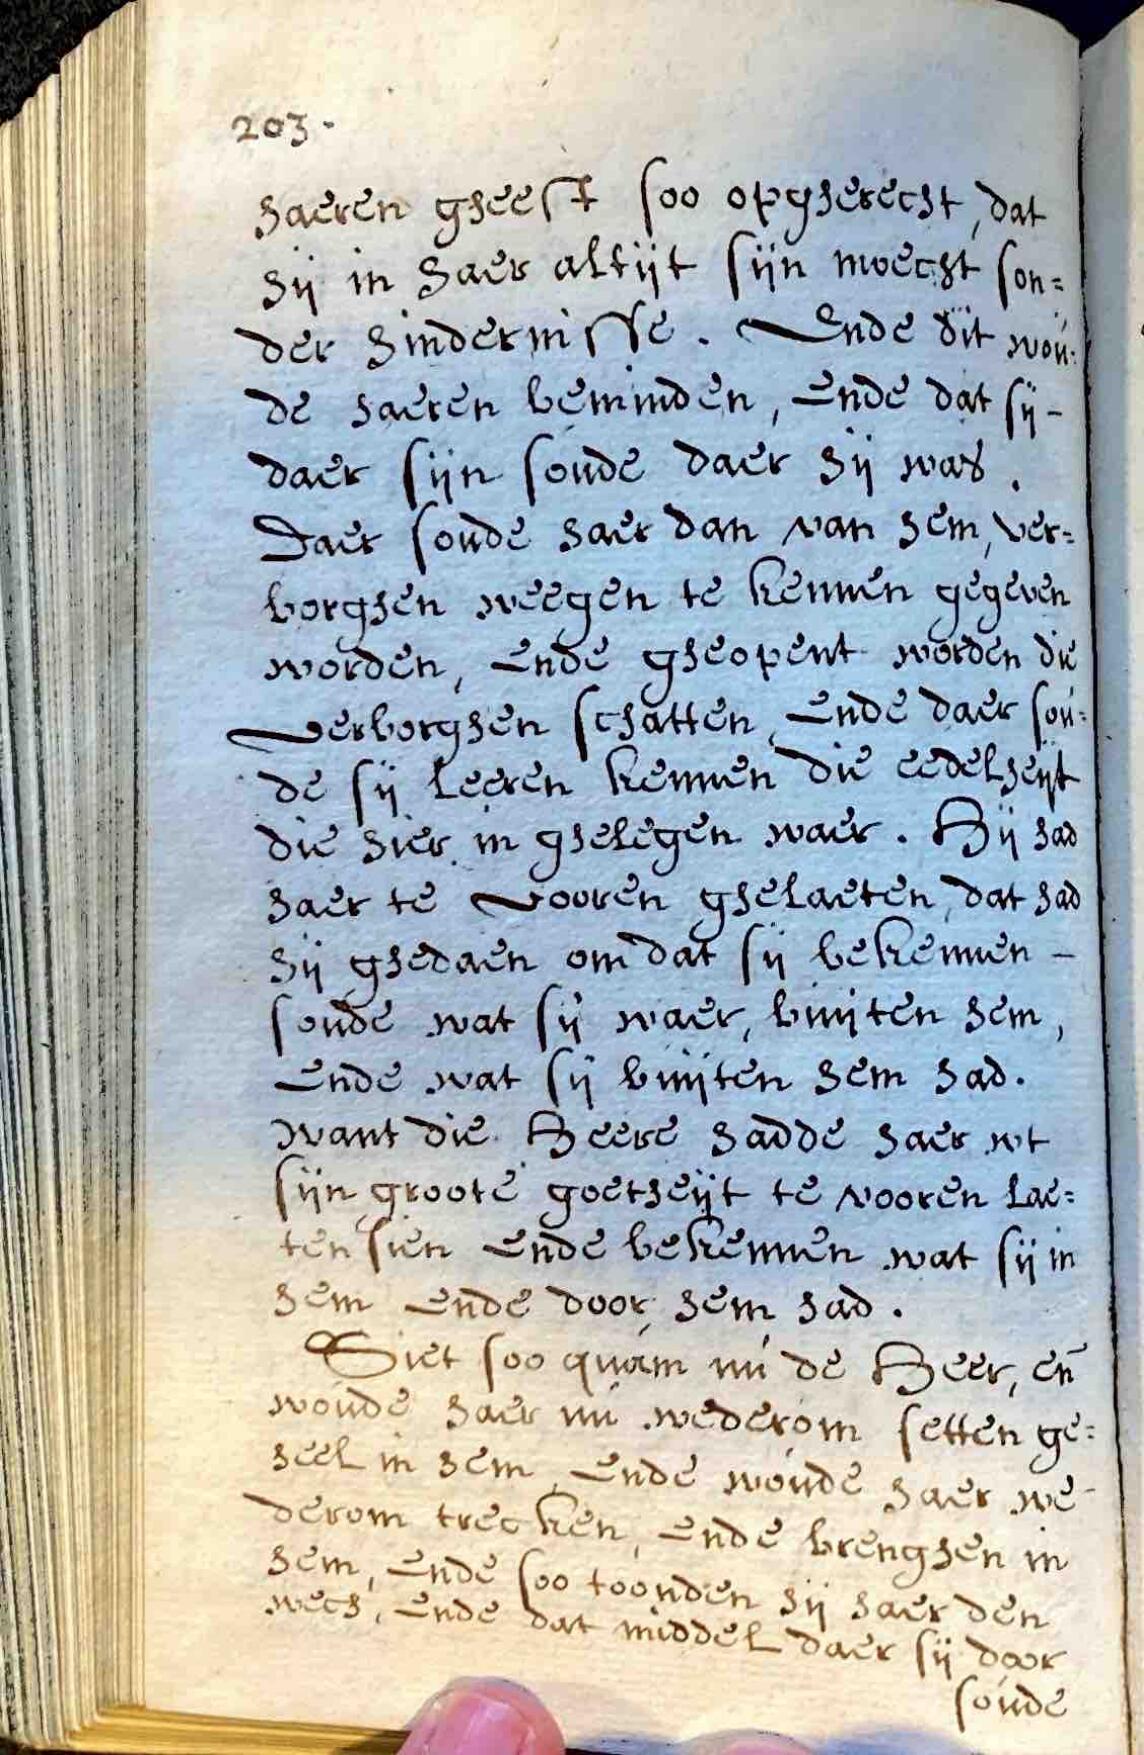 203.
haeren gheest soo opgherecht, dat
hij in haer altijt sijn moecht son=
der hindernisse. Ende dit wou=
de haeren beminden, Ende dat sij-
daer sijn soude daer hij was.
Daer soude haer dan van hem, ver=
borghen weegen te kennen gegeven
worden, Ende gheopent worden die
verborghen schatten, Ende daer sou=
de sij leeren kennen die eedelheijt
die hier in ghelegen waer. Hij had
haer te vooren ghelaeten, dat had
hij ghedaen om dat sij bekennen -
soude wat sij waer, buijten hem,
Ende wat sij buijten hem had.
want die Heere hadde haer wt
sijn groote goetheijt te vooren lae=
ten sien Ende bekennen wat sij in
hem Ende door hem had.
Siet soo quam nu de Heer, en̄
woude haer nu wederom setten ge=
heel in hem, Ende woude haer we-
derom trecken, Ende brenghen in
hem, Ende soo toonden hij haer den
wech, Ende dat middel daer sij door
soude